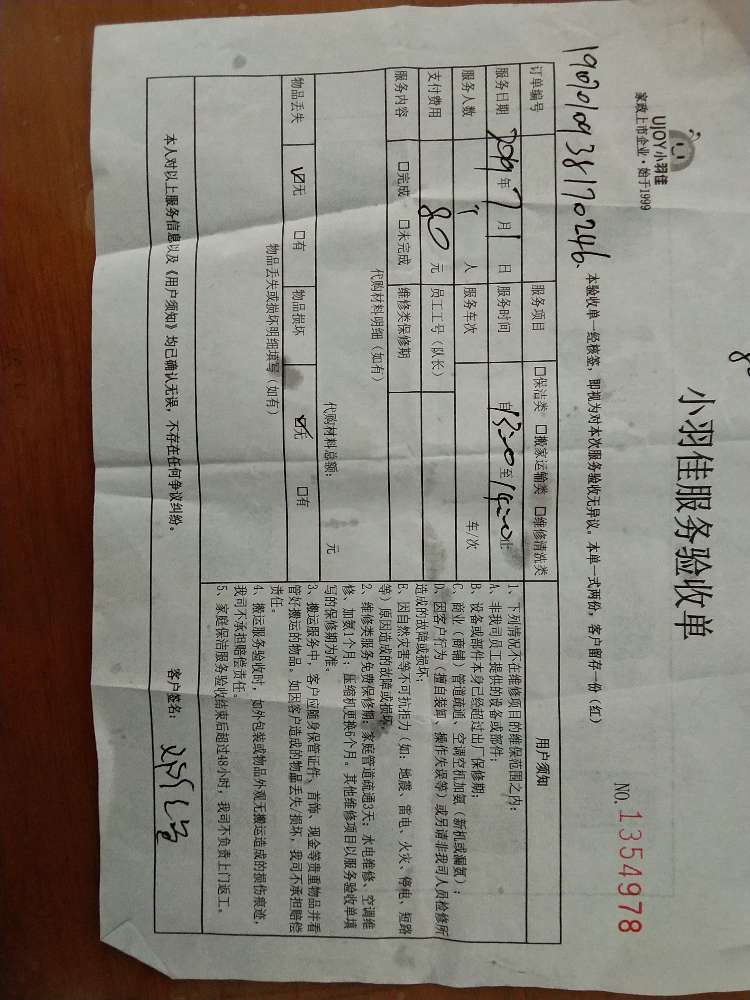 UJOY小羽佳
家政上市企业·始于1999
小羽佳服务验收单
NO. 1354978
本验收单一经核签，即视为对本次服务验收无异议。本单一式两份，客户留存一份（红）
订单编号
服务项目 口保洁类 口搬家运输类 口维修清洗类
服务日期 2019 年 7 月 1 日 服务时间 自 13:20 至 14:20 止
服务人数 人 服务车次 车/次
支付费用 80 元 员工工号（队长）
服务内容 口完成 口未完成 维修类保修期
代购材料明细（如有）
代购材料总额： 元
物品丢失 ☑无 口有 物品损坏 ☑无 口有
物品丢失或损坏明细填写（如有）
用户须知
1、下列情况不在维修项目的维保范围之内：
A、非我司员工提供的设备或部件；
B、设备或部件本身已经超过出厂保修期；
C、商业（商铺）管道疏通、空调空机加氨（新机或漏氨）；
D、因客户行为（擅自装卸、操作失误等）或另请非我司人员检修所
造成的故障或损坏；
E、因自然灾害等不可抗拒力（如：地震、雷电、火灾、停电、短路
等）原因造成的故障或损坏；
2、维修类服务免费保修期：家庭管道疏通3天；水电维修、空调维
修、加氨1个月；压缩机更换6个月。其他维修项目以服务验收单填
写的保修期为准。
3、搬运服务中，客户应随身保管证件、首饰、现金等贵重物品并看
管好搬运的物品。如因客户造成的物品丢失/损坏，我司不承担赔偿
责任。
4、搬运服务验收时，如外包装或物品外观无搬运造成的损伤痕迹，
我司不承担赔偿责任。
5、家庭保洁服务验收结束后超过48小时，我司不负责上门返工。
本人对以上服务信息以及《用户须知》均已确认无误，不存在任何争议纠纷。 客户签名：